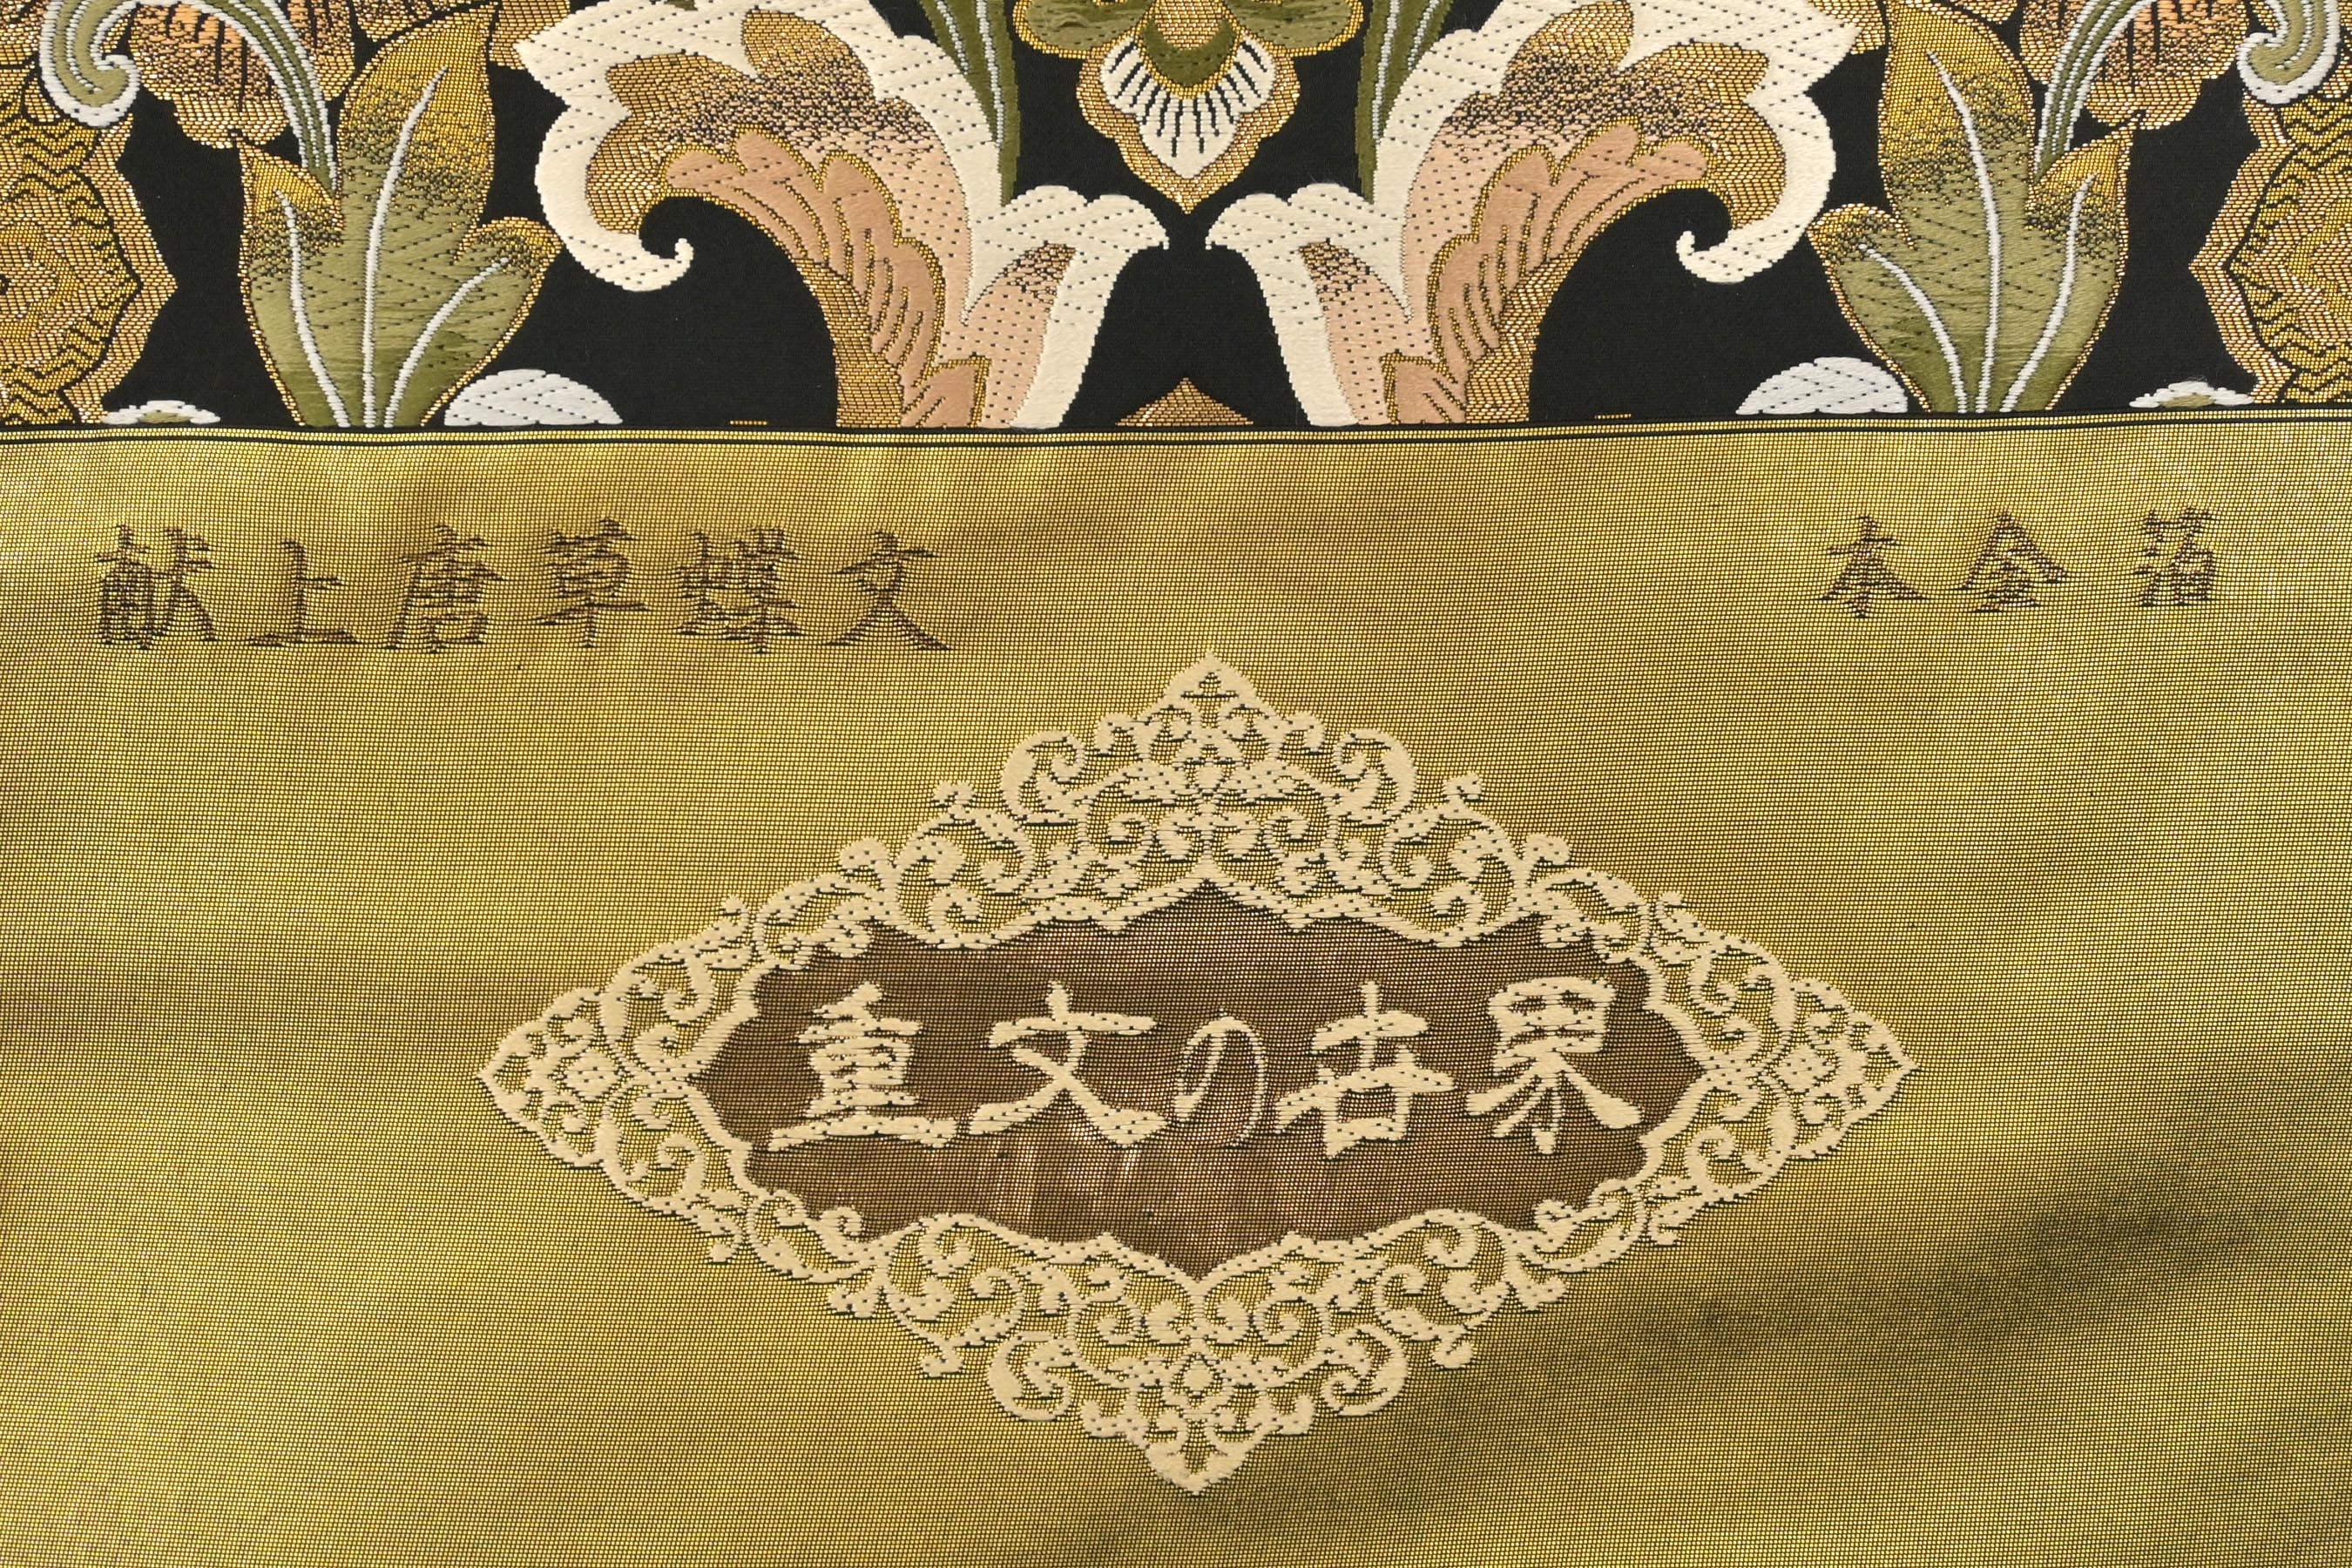 献上唐草蝶文
本金箔
重文の世界